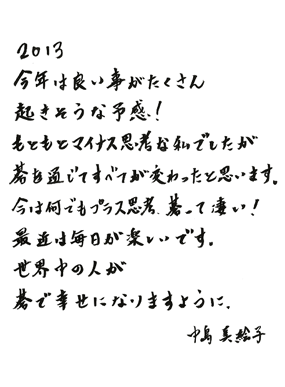 2013
今年は良い事がたくさん
起きそうな予感！
もともとマイナス思考な私でしたが
碁を通じてすべてが変わったと思います。
今は何でもプラス思考、碁って凄い！
最近は毎日が楽しいです。
世界中の人が
碁で幸せになりますように。
中島美絵子